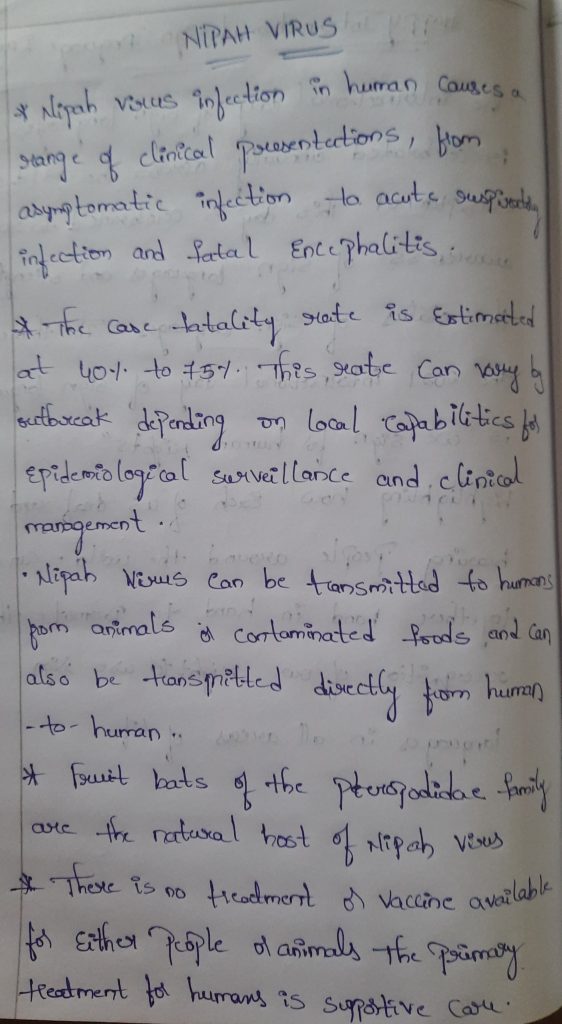 NIPAH VIRUS
* Nipah virus infection in human causes a
range of clinical presentations, from
asymptomatic infection to acute respiratory
infection and fatal Encephalitis.
* The case fatality rate is Estimated
at 40% to 75%. This rate can vary by
outbreak depending on local capabilities for
Epidemiological surveillance and clinical
management.
• Nipah Virus can be transmitted to humans
from animals or contaminated foods and can
also be transmitted directly from human
-to- human.
* Fruit bats of the pteropodidae family
are the natural host of Nipah virus
* There is no treatment or vaccine available
for Either People or animals the primary
treatment for humans is supportive care.